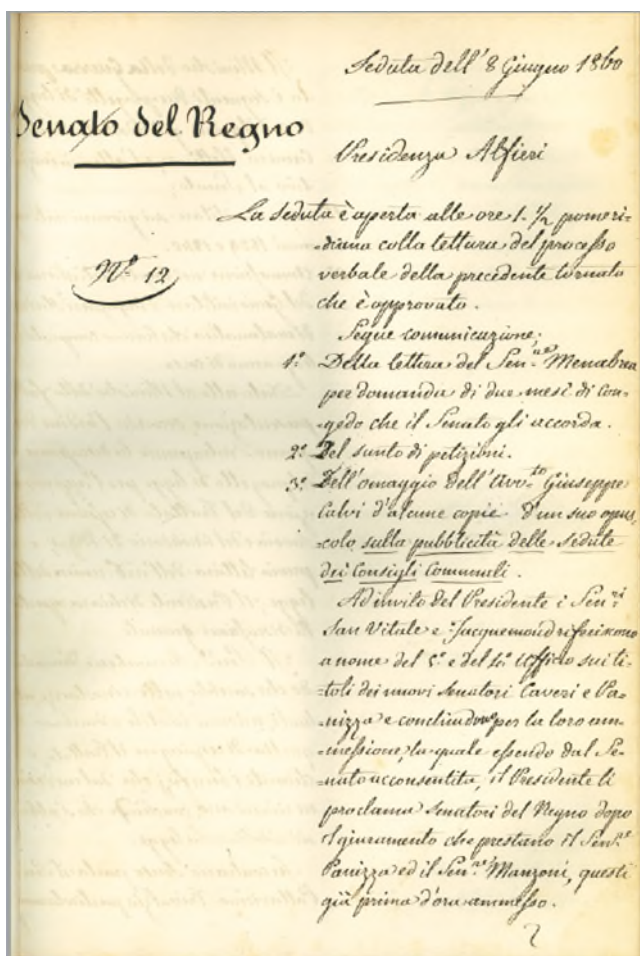 Seduta dell' 8 Giugno 1860
Senato del Regno
Presidenza Alfieri
N.° 12
La seduta è aperta alle ore 1. 1/2 pomeri-
=diana colla lettura del processo
verbale della precedente tornata
che è approvato.
Segue comunicazione:
1.° Della lettura del Sen.re Menabrea
per domanda di due mesi di con-
=gedo che il Senato gli accorda.
2.° Del sunto di petizioni.
3.° Dell'omaggio dell'Avv.to Giuseppe
Calvi d'alcune copie d'un suo opus
=colo sulla pubblicità delle sedute
dei Consigli Comunali.
Ad invito del Presidente i Sen.ri
San Vitale e Jacquemoud riferiscono
a nome del 5.° e del Ufficio sui ti-
=toli dei nuovi Senatori Caveri e Pa-
=nizza e conchiudono per la loro am-
=messione, la quale essendo dal Se-
=nato acconsentita, il Presidente li
proclama Senatori del Regno dopo
il giuramento che prestano il Sen.re
Panizza ed il Sen.re Manzoni, questi
già prima d'ora ammesso.